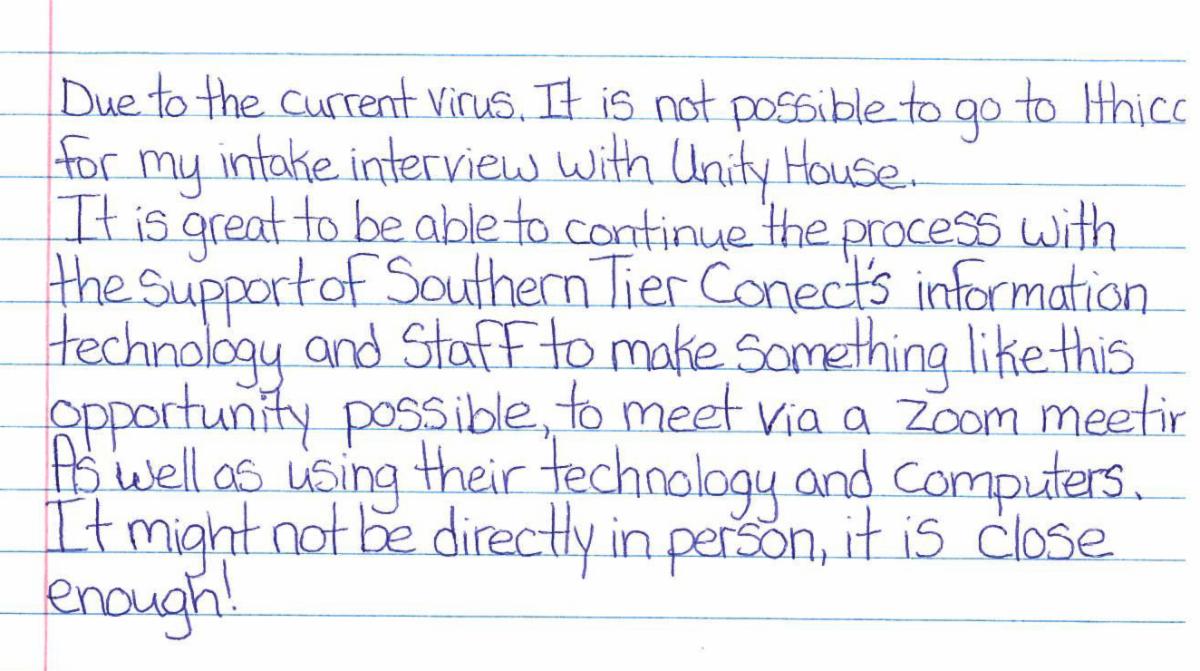 Due to the current virus. It is not possible to go to Ithicc
for my intake interview with Unity House.
It is great to be able to continue the process with
the support of Southern Tier Conect's information
technology and Staff to make something like this
opportunity possible, to meet via a Zoom meetin
As well as using their technology and computers.
It might not be directly in person, it is close
enough!